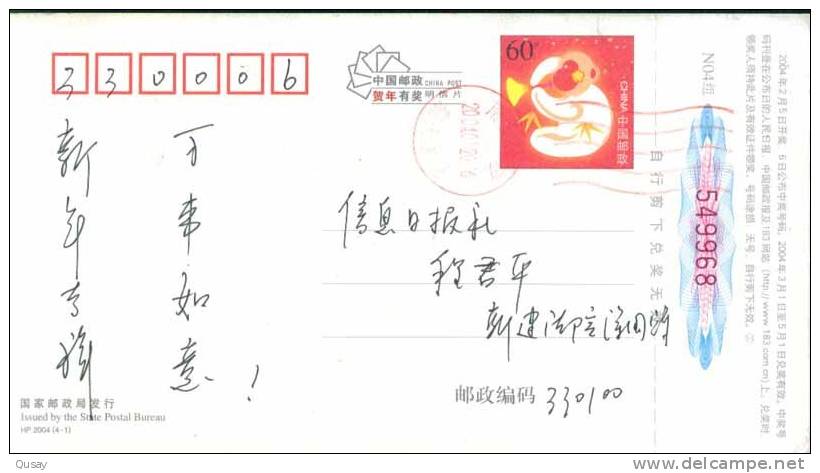 330006
中国邮政 CHINA POST
贺年有奖 明信片
60
CHINA 中国邮政
N04组
549968
自行剪下兑奖无效
2004年2月5日开奖 6日公布中奖号码，2004年3月1日至5月1日兑奖有效。中奖号
码刊登在公布日的人民日报、中国邮政报及183网站（http://www.183.com.cn)上，兑奖时
领奖人须持此片及有效证件领奖，号码涂损 无号、自行剪下无效。②
新年幸福
万事如意！
信息日报社
程君平
新建
邮政编码 330100
国家邮政局发行
Issued by the State Postal Bureau
HP 2004 (4-1)
Qusay
delcampe.net